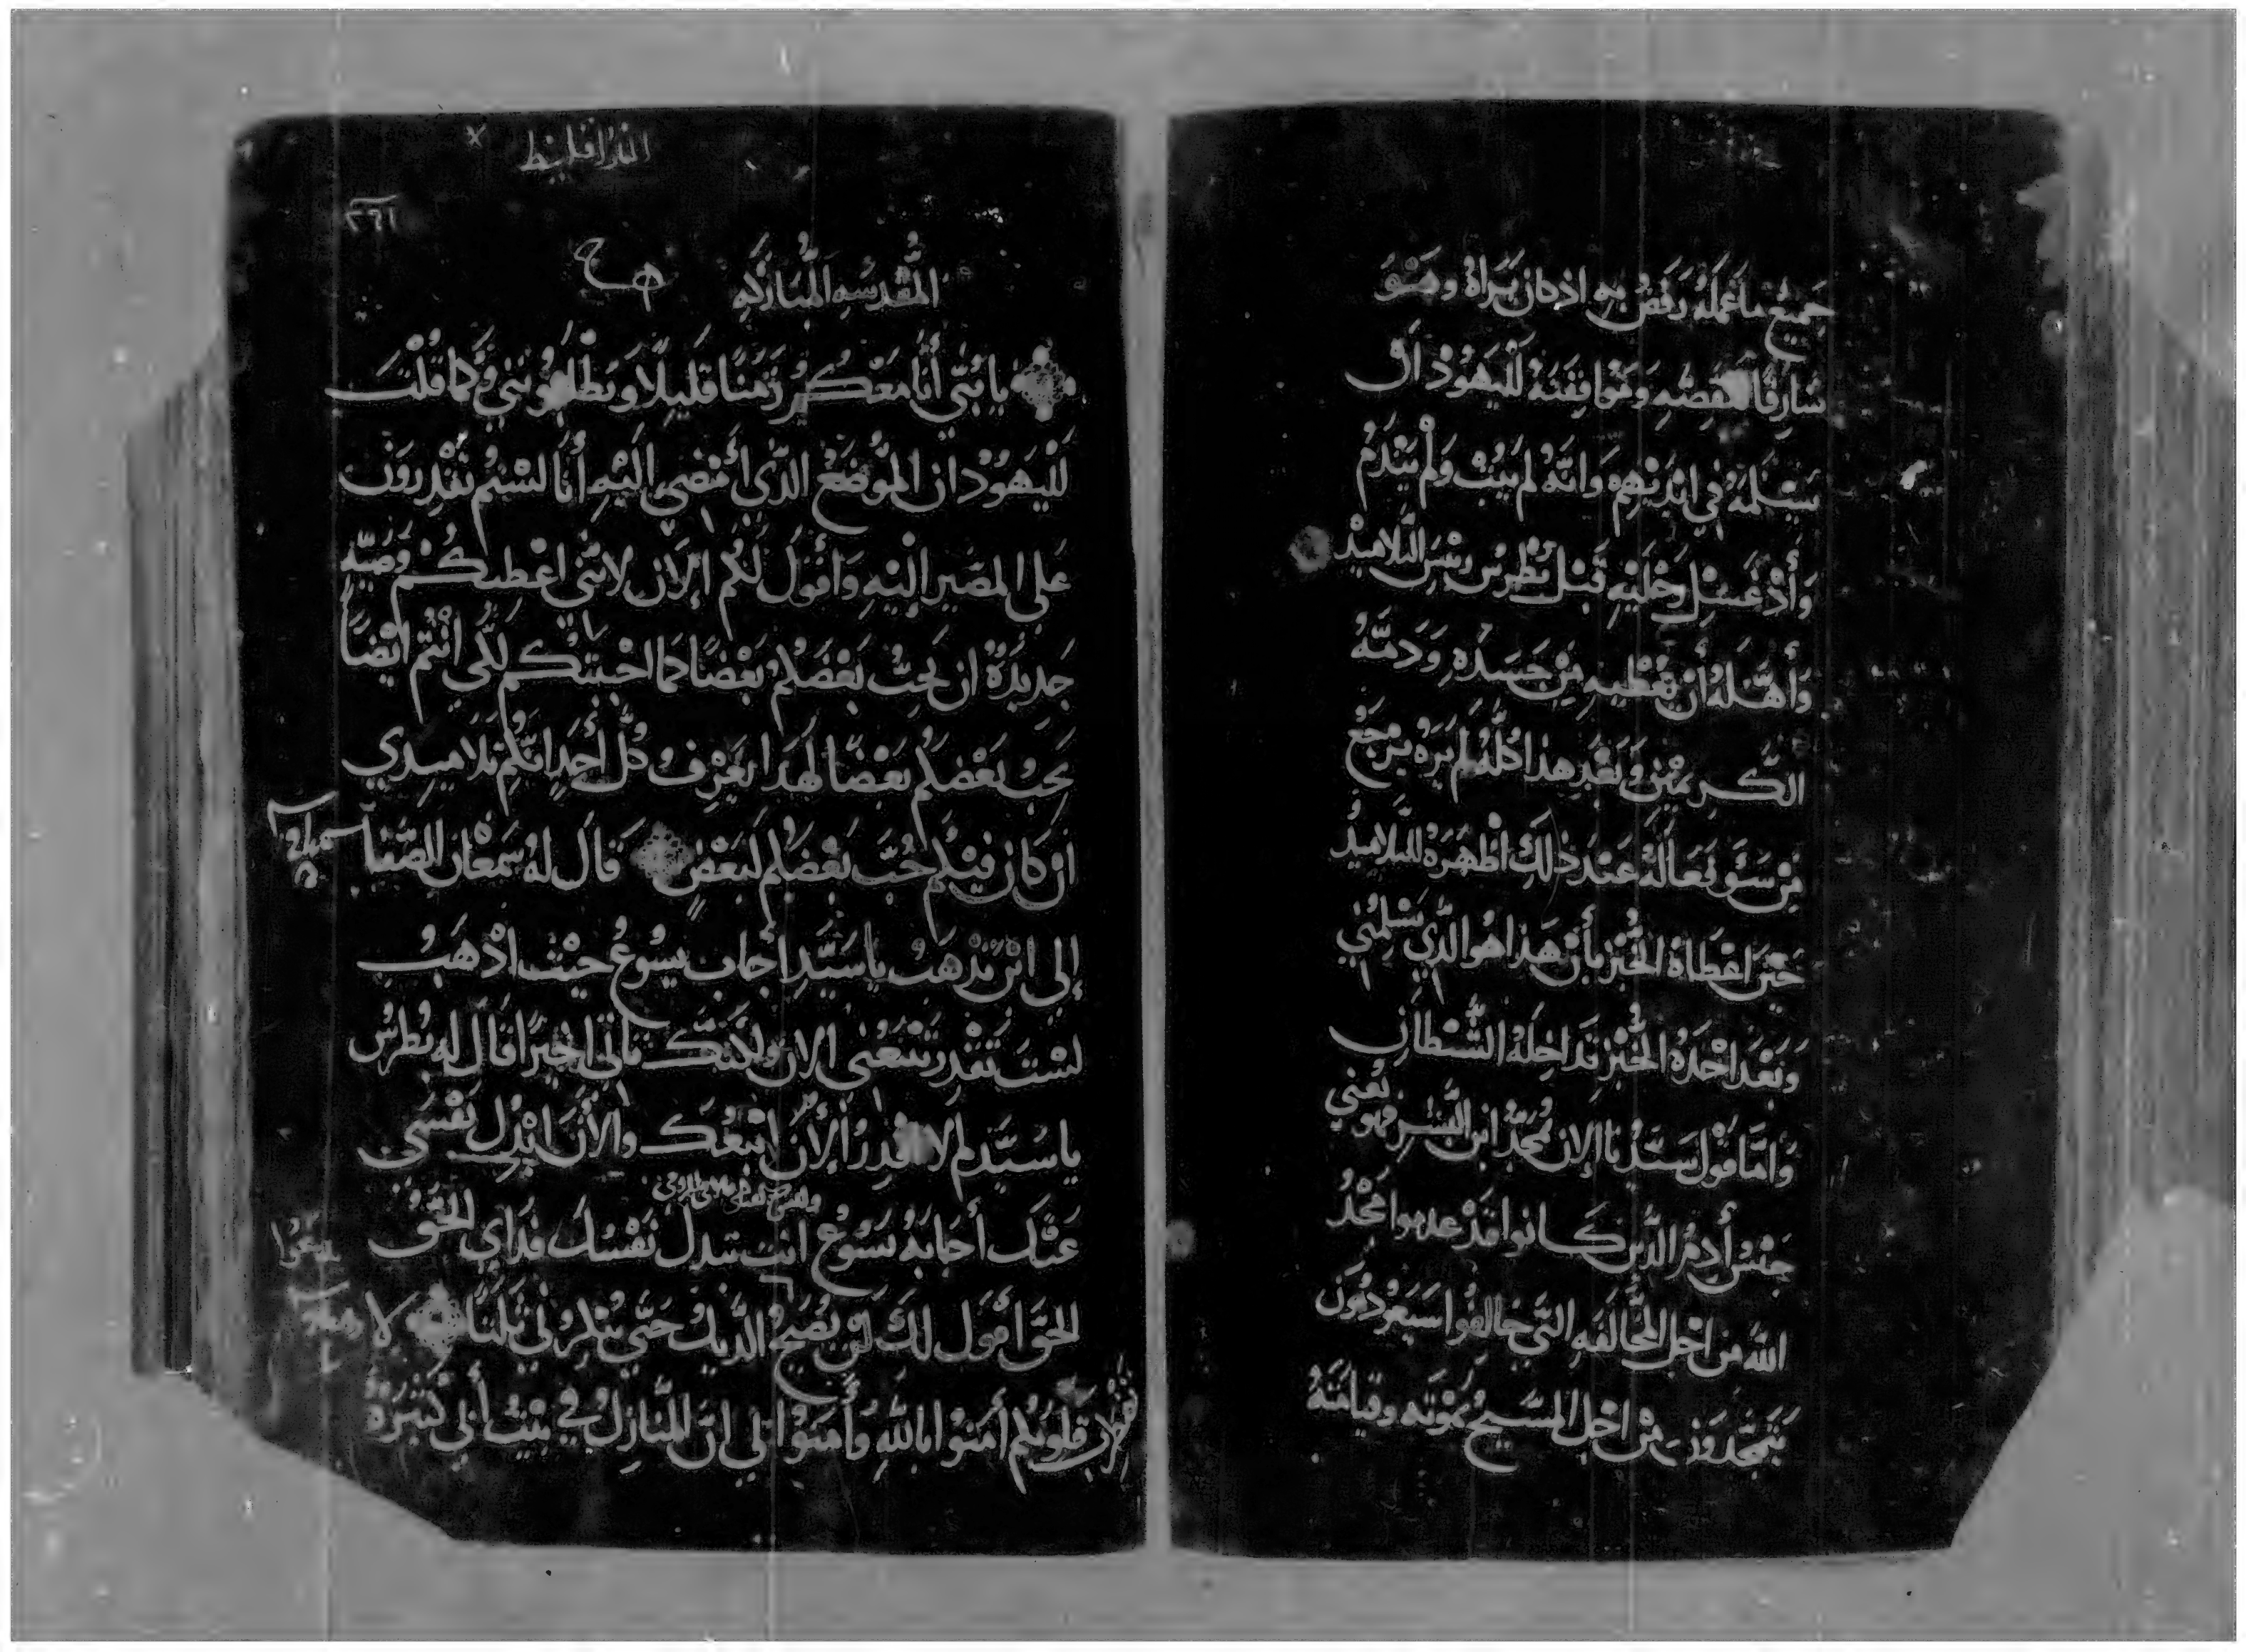 جميع ما عمله رفض به اذ كان يراه وهو
سارقا لقصه وموافقته لليهود ان
يسلمه في ايديهم وانه لم يتب ولم يندم
واذ غسل رجليه قبل بطرس ريس التلاميد
واهله أن يعطيه من جسده ودمه
الكريمين وبعد هذا كله لم يره يرجع
من سو فعاله عند ذلك اظهره للتلاميد
حين اعطاه الخبز بأن هذا هو الدي يسلمني
وبعد اخده الخبز تداخله الشيطان
واما قول سيدنا الان تمجد ابن البشر فهو يعني
جنس أدم الدين كانوا قد عدموا مجد
الله من اجل المخالفه التي خالفوا سيعودون
يتمجدون من اجل المسيح بموته وقيامته
الفراقليط
المقدسه المباركه
يا بني أنا معكم زمنا قليلا وتطلبونني وكما قلت
لليهود ان الموضع الدي أمضي اليه أنا لستم تقدرون
على المصير إليه وأقول لكم الان لانني اعطيكم وصيه
جديدة ان يحب بعضكم بعضا كما احببتكم لكي أنتم ايضا
يحب بعضكم بعضا لهدا يعرف كل أحد انكم تلاميدي
ان كان فيكم حب بعضكم لبعض قال له سمعان الصفا
إلى اين تدهب يا سيد أجاب يسوع حيث ادهب
لست تقدر تتبعني الان ولكنك تاتي اخيرا قال له بطرس
يا سيد لم لا اقدر ألان اتبعك والأن ابدل نفسي
عنك أجابه يسوع انت تبدل نفسك فداي الحق
الحق أقول لك لن يصيح الديك حتى تنكرني ثلثا لا
تضطرب قلوبكم أمنوا بالله وأمنوا بي ان المنازل في بيت أبي كثيرة